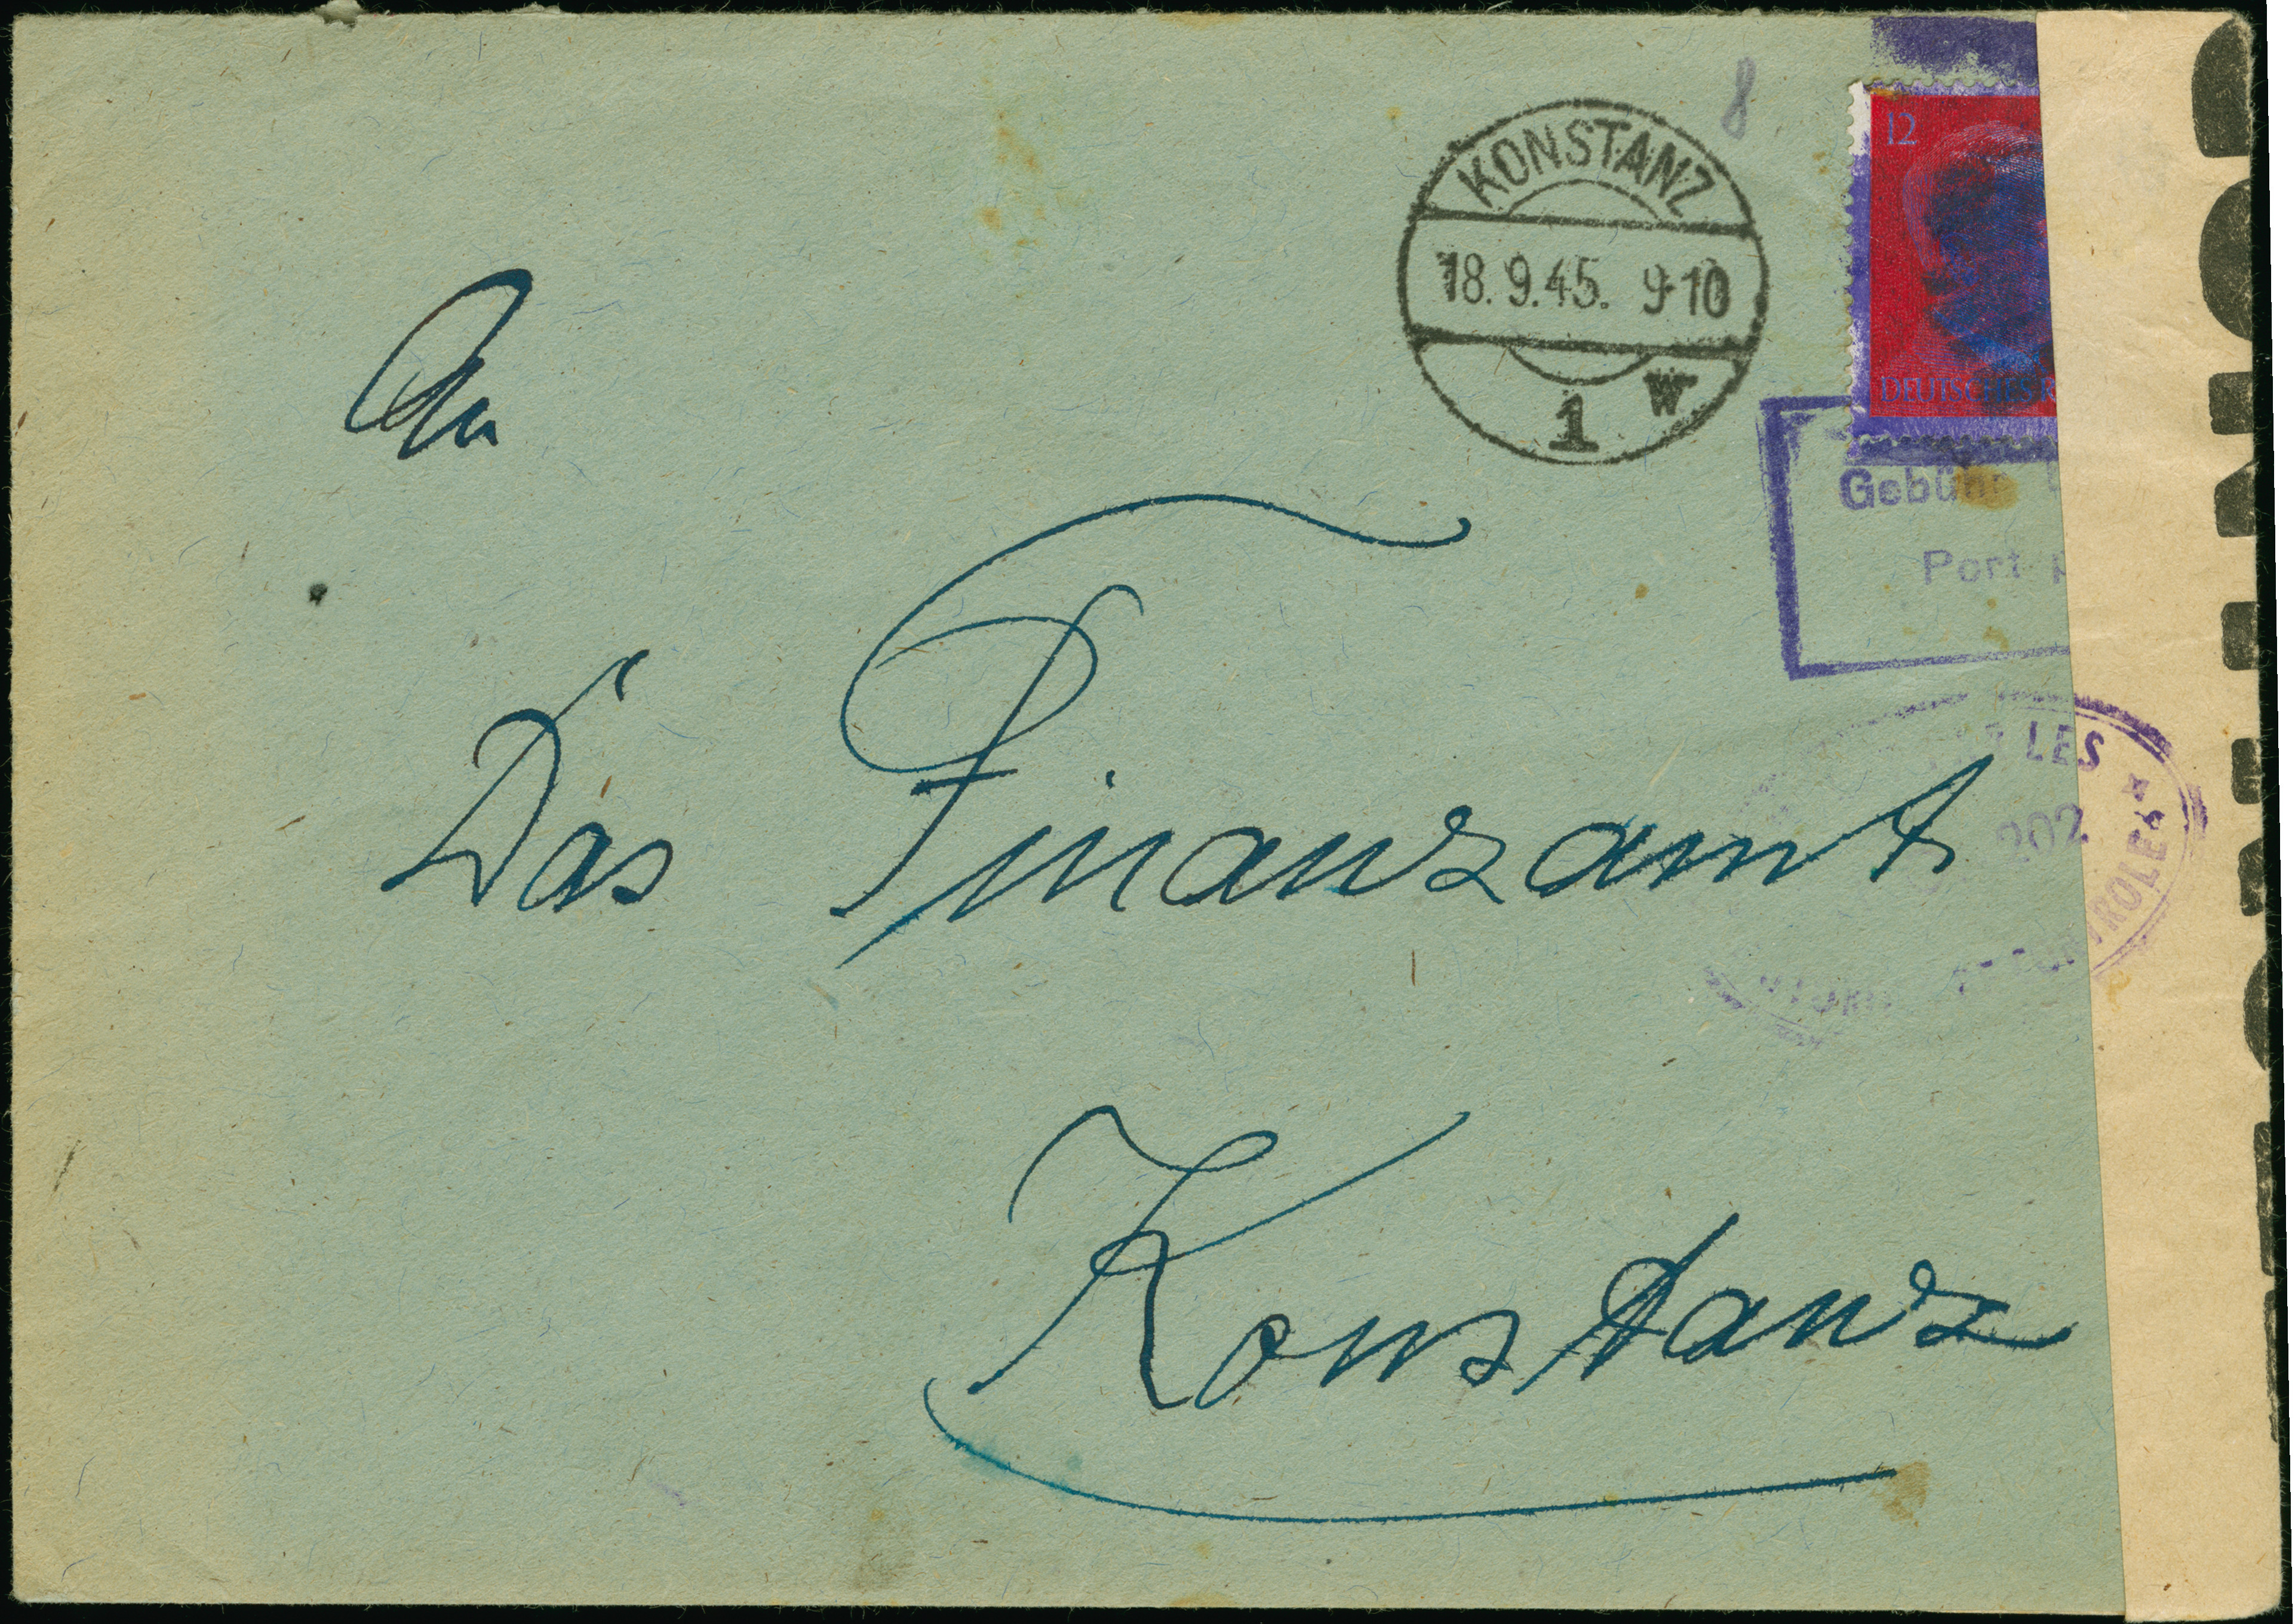 8
KONSTANZ
18.9.45. 9-10
1 w
12
DEUTSCHES R
Gebühr
Port p
LES
202
TROLES
An
Das Finanzamt
Konstanz